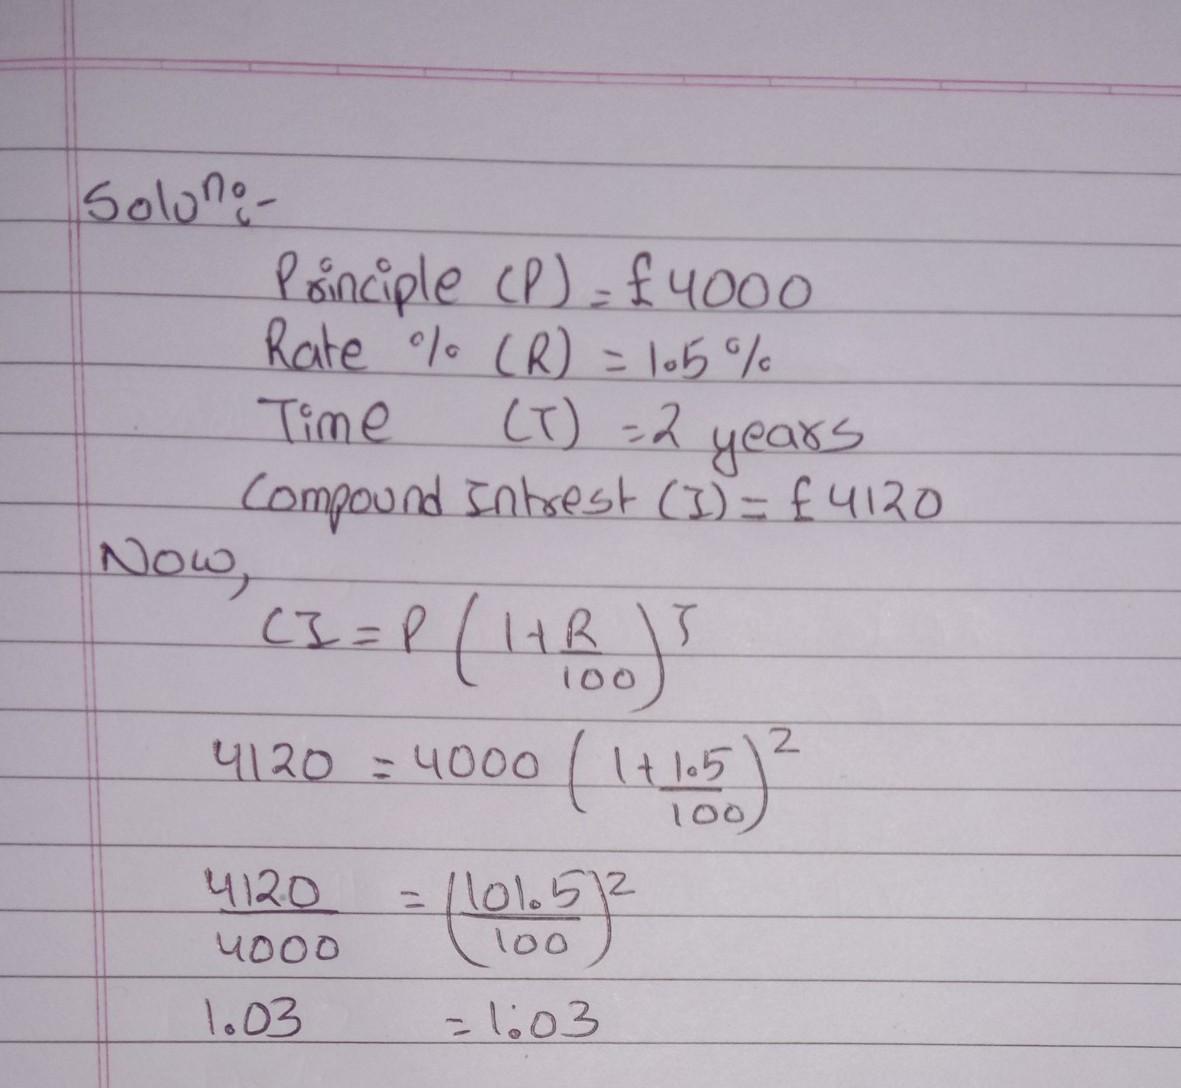 Soluⁿ:-
Principle (P) = £4000
Rate % (R) = 1.5%
Time (T) = 2 years
Compound Intrest (I) = £4120
Now,
CI = P (1 + R/100)ᵀ
4120 = 4000 (1 + 1.5/100)²
4120/4000 = (101.5/100)²
1.03 = 1.03